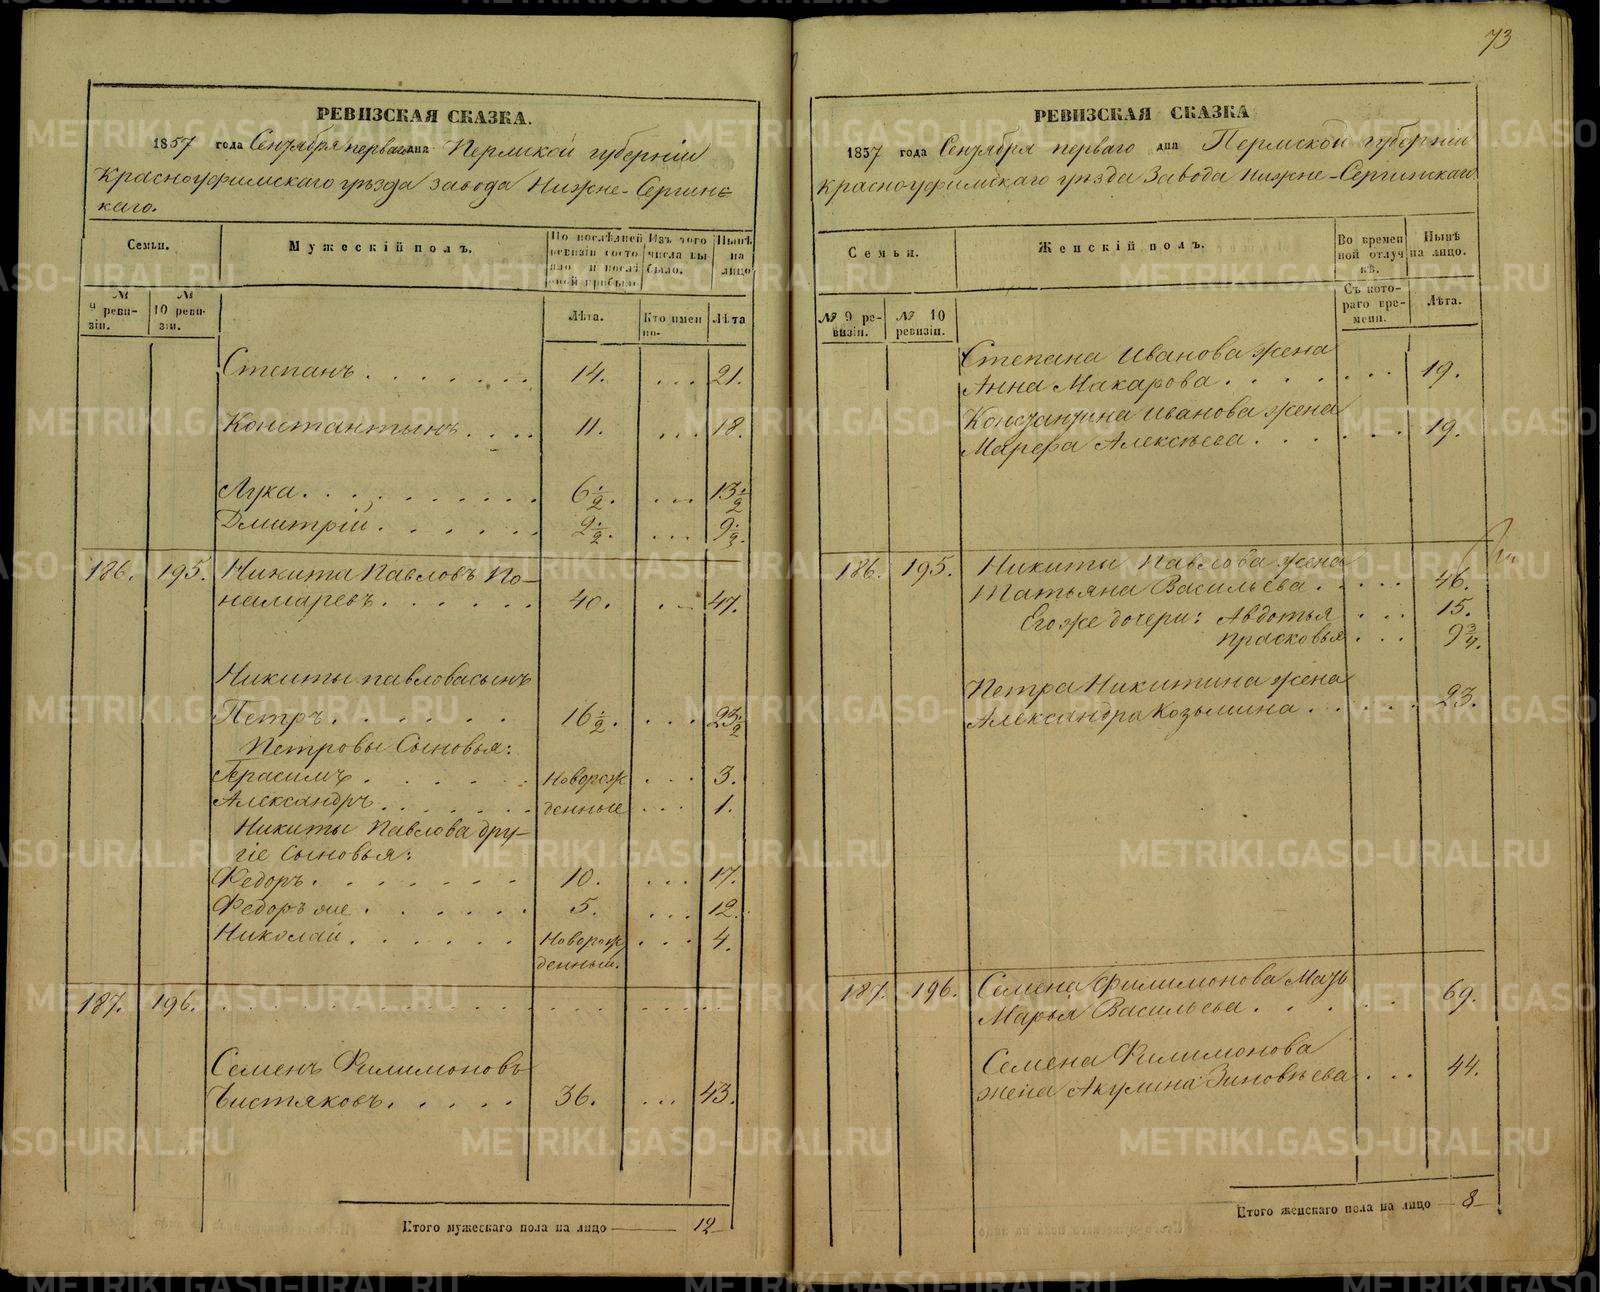 РЕВИЗСКАЯ СКАЗКА.
1857 года Сентября перваго дня Пермской губерніи
Красноуфимскаго уѣзда завода Нижне-Сергинс
каго.
Семьи.
Мужескій полъ.
По послѣдней ревизіи состояло и послѣ оной прибыло
Изъ того числа выбыло.
Нынѣ на лицо
№ 9 ревизіи.
№ 10 ревизіи.
Лѣта.
Кто именно.
Лѣта
Степанъ 14. 21.
Константинъ 11. 18.
Лука 6 1/2. 13 1/2
Дмитрій 2 1/2. 9 1/2.
186. 195. Никита Павловъ По-
намаревъ 40. 47.
Никиты Павлова сынъ
Петръ 16 1/2. 23 1/2
Петровы Сыновья:
Герасимъ Новорож 3.
Александръ денные 1.
Никиты Павлова дру-
гіе сыновья:
Федоръ 10. 17.
Федоръ же 5. 12.
Николай Новорож 4.
денный.
187. 196.
Семенъ Филимоновъ
Чистяковъ 36. 43.
Итого мужескаго пола на лицо 12
73
РЕВИЗСКАЯ СКАЗКА
1857 года Сентября перваго дня Пермской губерніи
Красноуфимскаго уѣзда Завода Нижне-Сергинскаго
Семьи.
Женскій полъ.
Во временной отлучкѣ.
Нынѣ на лицо.
№ 9 ревизіи.
№ 10 ревизіи.
Съ котораго времени.
Лѣта.
Степана Иванова жена
Анна Макарова 19.
Константина Иванова жена
Марфа Алексѣева 19.
186. 195. Никиты Павлова жена
Татьяна Васильева 46.
Его же дочери: Авдотья 15.
Прасковья 9 3/4.
Петра Никитина жена
Александра Козьмина 23.
187. 196. Семена Филимонова Мать
Марья Васильева 69.
Семена Филимонова
жена Акулина Зиновьева 44.
Итого женскаго пола на лицо 8
METRIKI.GASO-URAL.RU